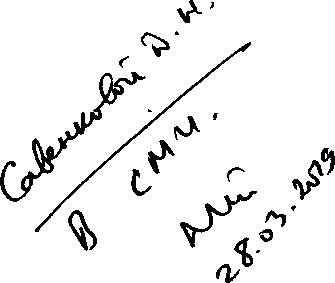 Савенковой Д. Н.
В СМИ.
28.03.2019